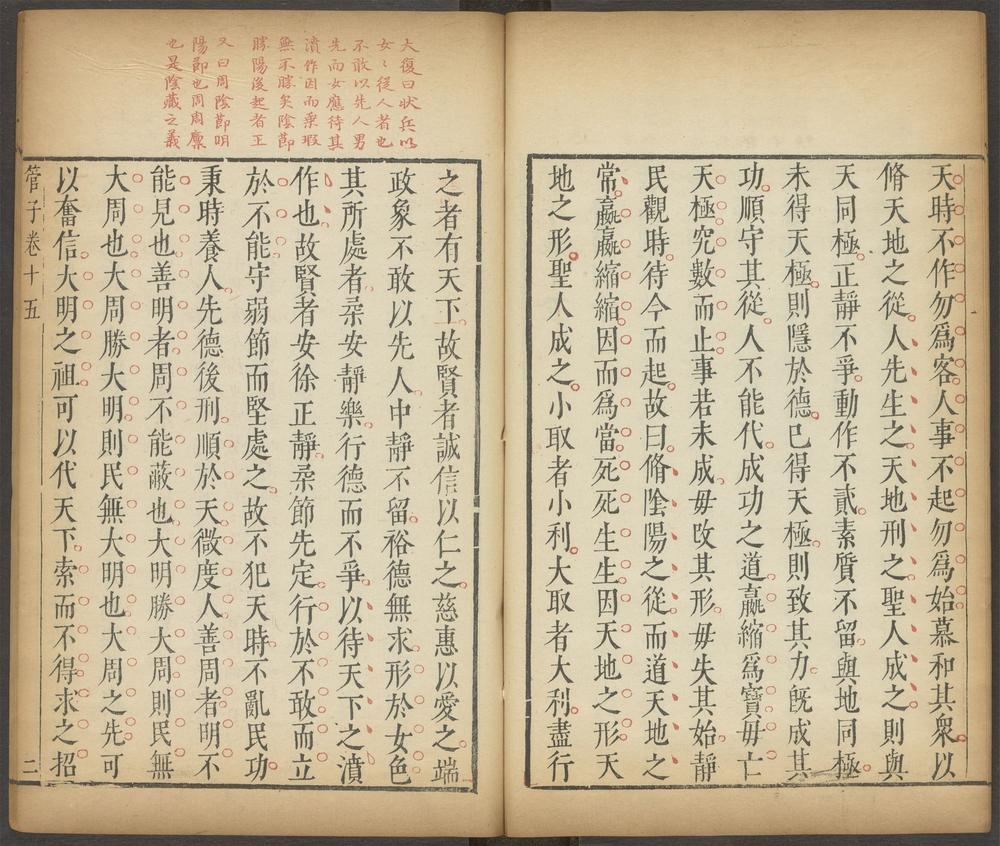 天時不作勿爲客人事不起勿爲始慕和其衆以
脩天地之從人先生之天地刑之聖人成之則與
天同極正靜不爭動作不貳素質不留與地同極
未得天極則隱於德已得天極則致其力旣成其
功順守其從人不能代成功之道嬴縮爲寶毋亡
天極究數而止事若未成毋改其形毋失其始靜
民觀時待令而起故曰脩陰陽之從而道天地之
常嬴嬴縮縮因而爲當死死生生因天地之形天
地之形聖人成之小取者小利大取者大利盡行
大復曰狀兵以
女〻從人者也
不敢以先人男
先而女應待其
濆作因而乘瑕
無不勝矣陰節
勝陽後起者王
又曰周陰節明
陽節也周周麋
也是陰藏之義
之者有天下故賢者誠信以仁之慈惠以愛之端
政象不敢以先人中靜不留裕德無求形於女色
其所處者柔安靜樂行德而不爭以待天下之濆
作也故賢者安徐正靜柔節先定行於不敢而立
於不能守弱節而堅處之故不犯天時不亂民功
秉時養人先德後刑順於天微度人善周者明不
能見也善明者周不能蔽也大明勝大周則民無
大周也大周勝大明則民無大明也大周之先可
以奮信大明之祖可以代天下索而不得求之招
管子卷十五
二